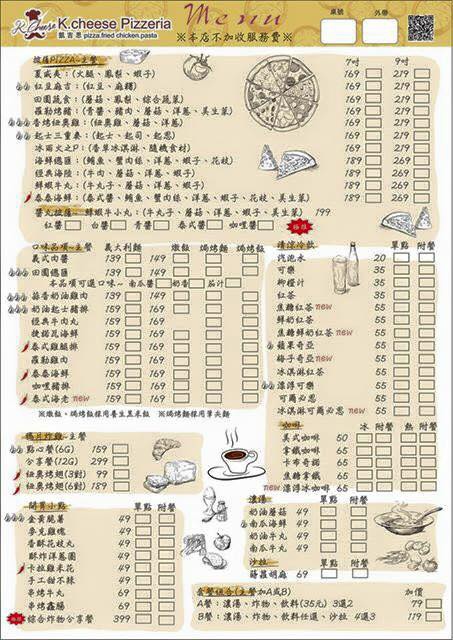 K.Cheese
K.cheese Pizzeria
凱吉思 pizza.fried chicken.pasta
Menu
※本店不加收服務費※
桌號
外帶
披薩PIZZA~主餐 7吋 9吋
夏威夷：(火腿、鳳梨、蝦子) 169 219
紅豆麻吉：(紅豆、麻糬) 169 219
田園蔬食：(蘑菇、鳳梨、綜合蔬菜) 169 219
羅勒烤豬：(青醬、豬肉、蘑菇、洋蔥、美生菜) 169 219
香烤紐奧雞：(紐奧雞、蘑菇、洋蔥) 169 219
起士三重奏：(起士、起司、起思) 169 219
冰雨火之P：(香草冰淇淋、隨機食材) 169 219
海鮮總匯：(鮪魚、蟹肉絲、洋蔥、蝦子、花枝) 189 269
經典海陸：(牛肉、蘑菇、洋蔥、蝦子) 189 269
鮮蝦牛丸：(牛丸子、蘑菇、洋蔥、蝦子) 189 269
泰泰海鮮：(泰式醬、鮪魚、蟹肉絲、洋蔥、蝦子、花枝、美生菜) 189 269
醬丸拉薩~鮮蝦牛小丸：(牛丸子、蘑菇、洋蔥、蝦子、美生菜) 199
紅醬 白醬 青醬 泰式醬 咖哩醬
口味品項~主餐 義大利麵 燉飯 焗烤麵 焗烤飯
義式肉醬 139 149
田園總匯 139 149
本品項可選口味~ 南瓜醬 奶香 茄汁
蒜香奶油雞肉 159 169
奶油起士豬排 159 169
經典牛肉丸 159 169
捷諾瓦海鮮 159 169
泰式雞腿排 159 169
羅勒雞肉 159 169
泰泰海鮮 159 169
咖哩豬排 159 169
泰式海老 new 159 169
※燉飯、焗烤飯採用養生黑米飯 ※焗烤麵採用筆尖麵
清涼冷飲 單點 附餐
汽泡水 20
可樂 35
柳橙汁 35
紅茶 35
焦糖紅茶 new 55
鮮奶紅茶 55
焦糖鮮奶紅茶 new 55
蘋果奇亞 55
梅子奇亞 new 55
冰淇淋紅茶 55
漂浮可樂 55
可爾必思 55
冰淇淋可爾必思 new 55
咖啡 冰 附餐 熱 附餐
美式咖啡 50
拿鐵咖啡 65
卡布奇諾 65
焦糖拿鐵 65
new 漂浮冰咖啡 65
瑪月炸雞~主餐
點心餐(6G) 159
分享餐(12G) 299
紐奧烤翅(3對) 99
紐奧烤翅(6對) 189
開胃小點 單點 附餐
金黃脆薯 49
麥克雞塊 49
香酥花枝丸 49
酥炸洋蔥圈 49
卡拉雞米花 49
手工甜不辣 49
串烤牛丸 69
串烤鑫腸 69
綜合炸物分享餐 399
濃湯 單點 附餐
奶油蘑菇 49
南瓜海鮮 49
奶油牛丸 49
南瓜牛丸 49
沙拉
蘿蔔胡麻 69
套餐組合(主餐加A或B) 加價
A餐：濃湯、炸物、飲料(35元) 3選2 79
B餐：濃湯、炸物、飲料任選、沙拉 4選3 119